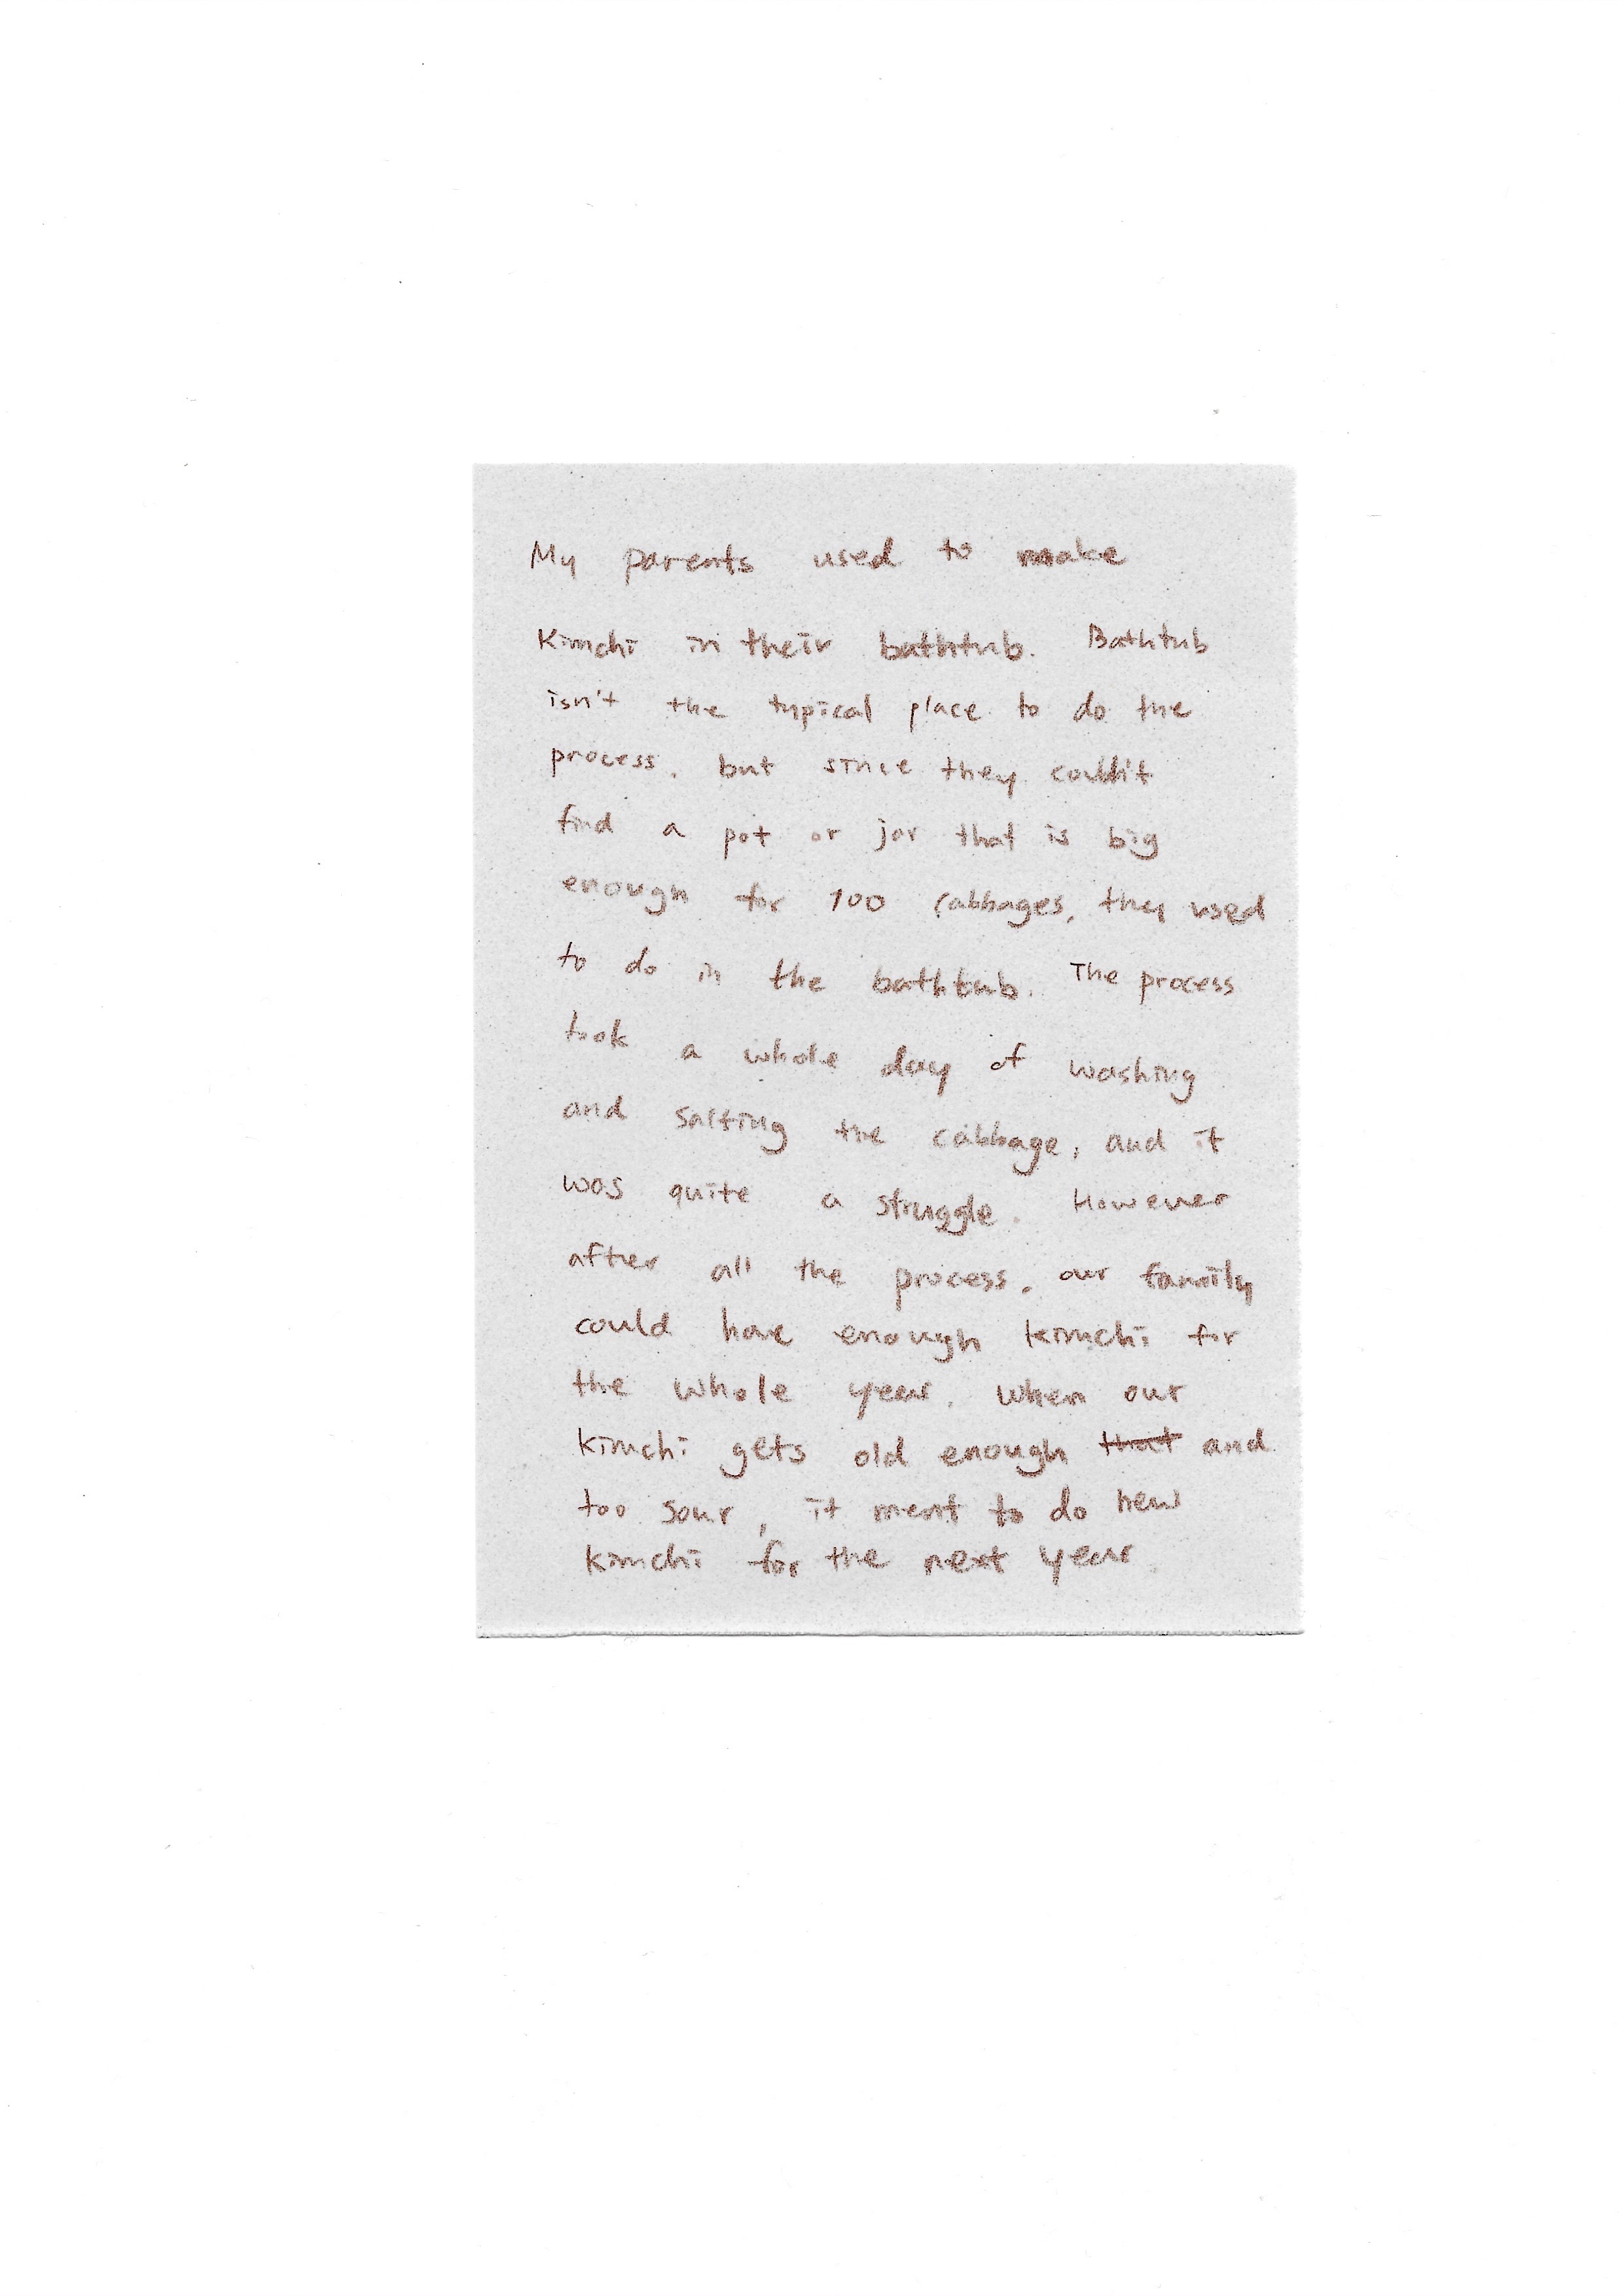 My parents used to make
Kimchi in their bathtub. Bathtub
isn't the typical place to do the
process, but since they couldn't
find a pot or jar that is big
enough for 100 cabbages, they used
to do in the bathtub. The process
took a whole day of washing
and salting the cabbage, and it
was quite a struggle. However
after all the process, our family
could have enough kimchi for
the whole year. When our
kimchi gets old enough that and
too sour, it ment to do new
kimchi for the next year.